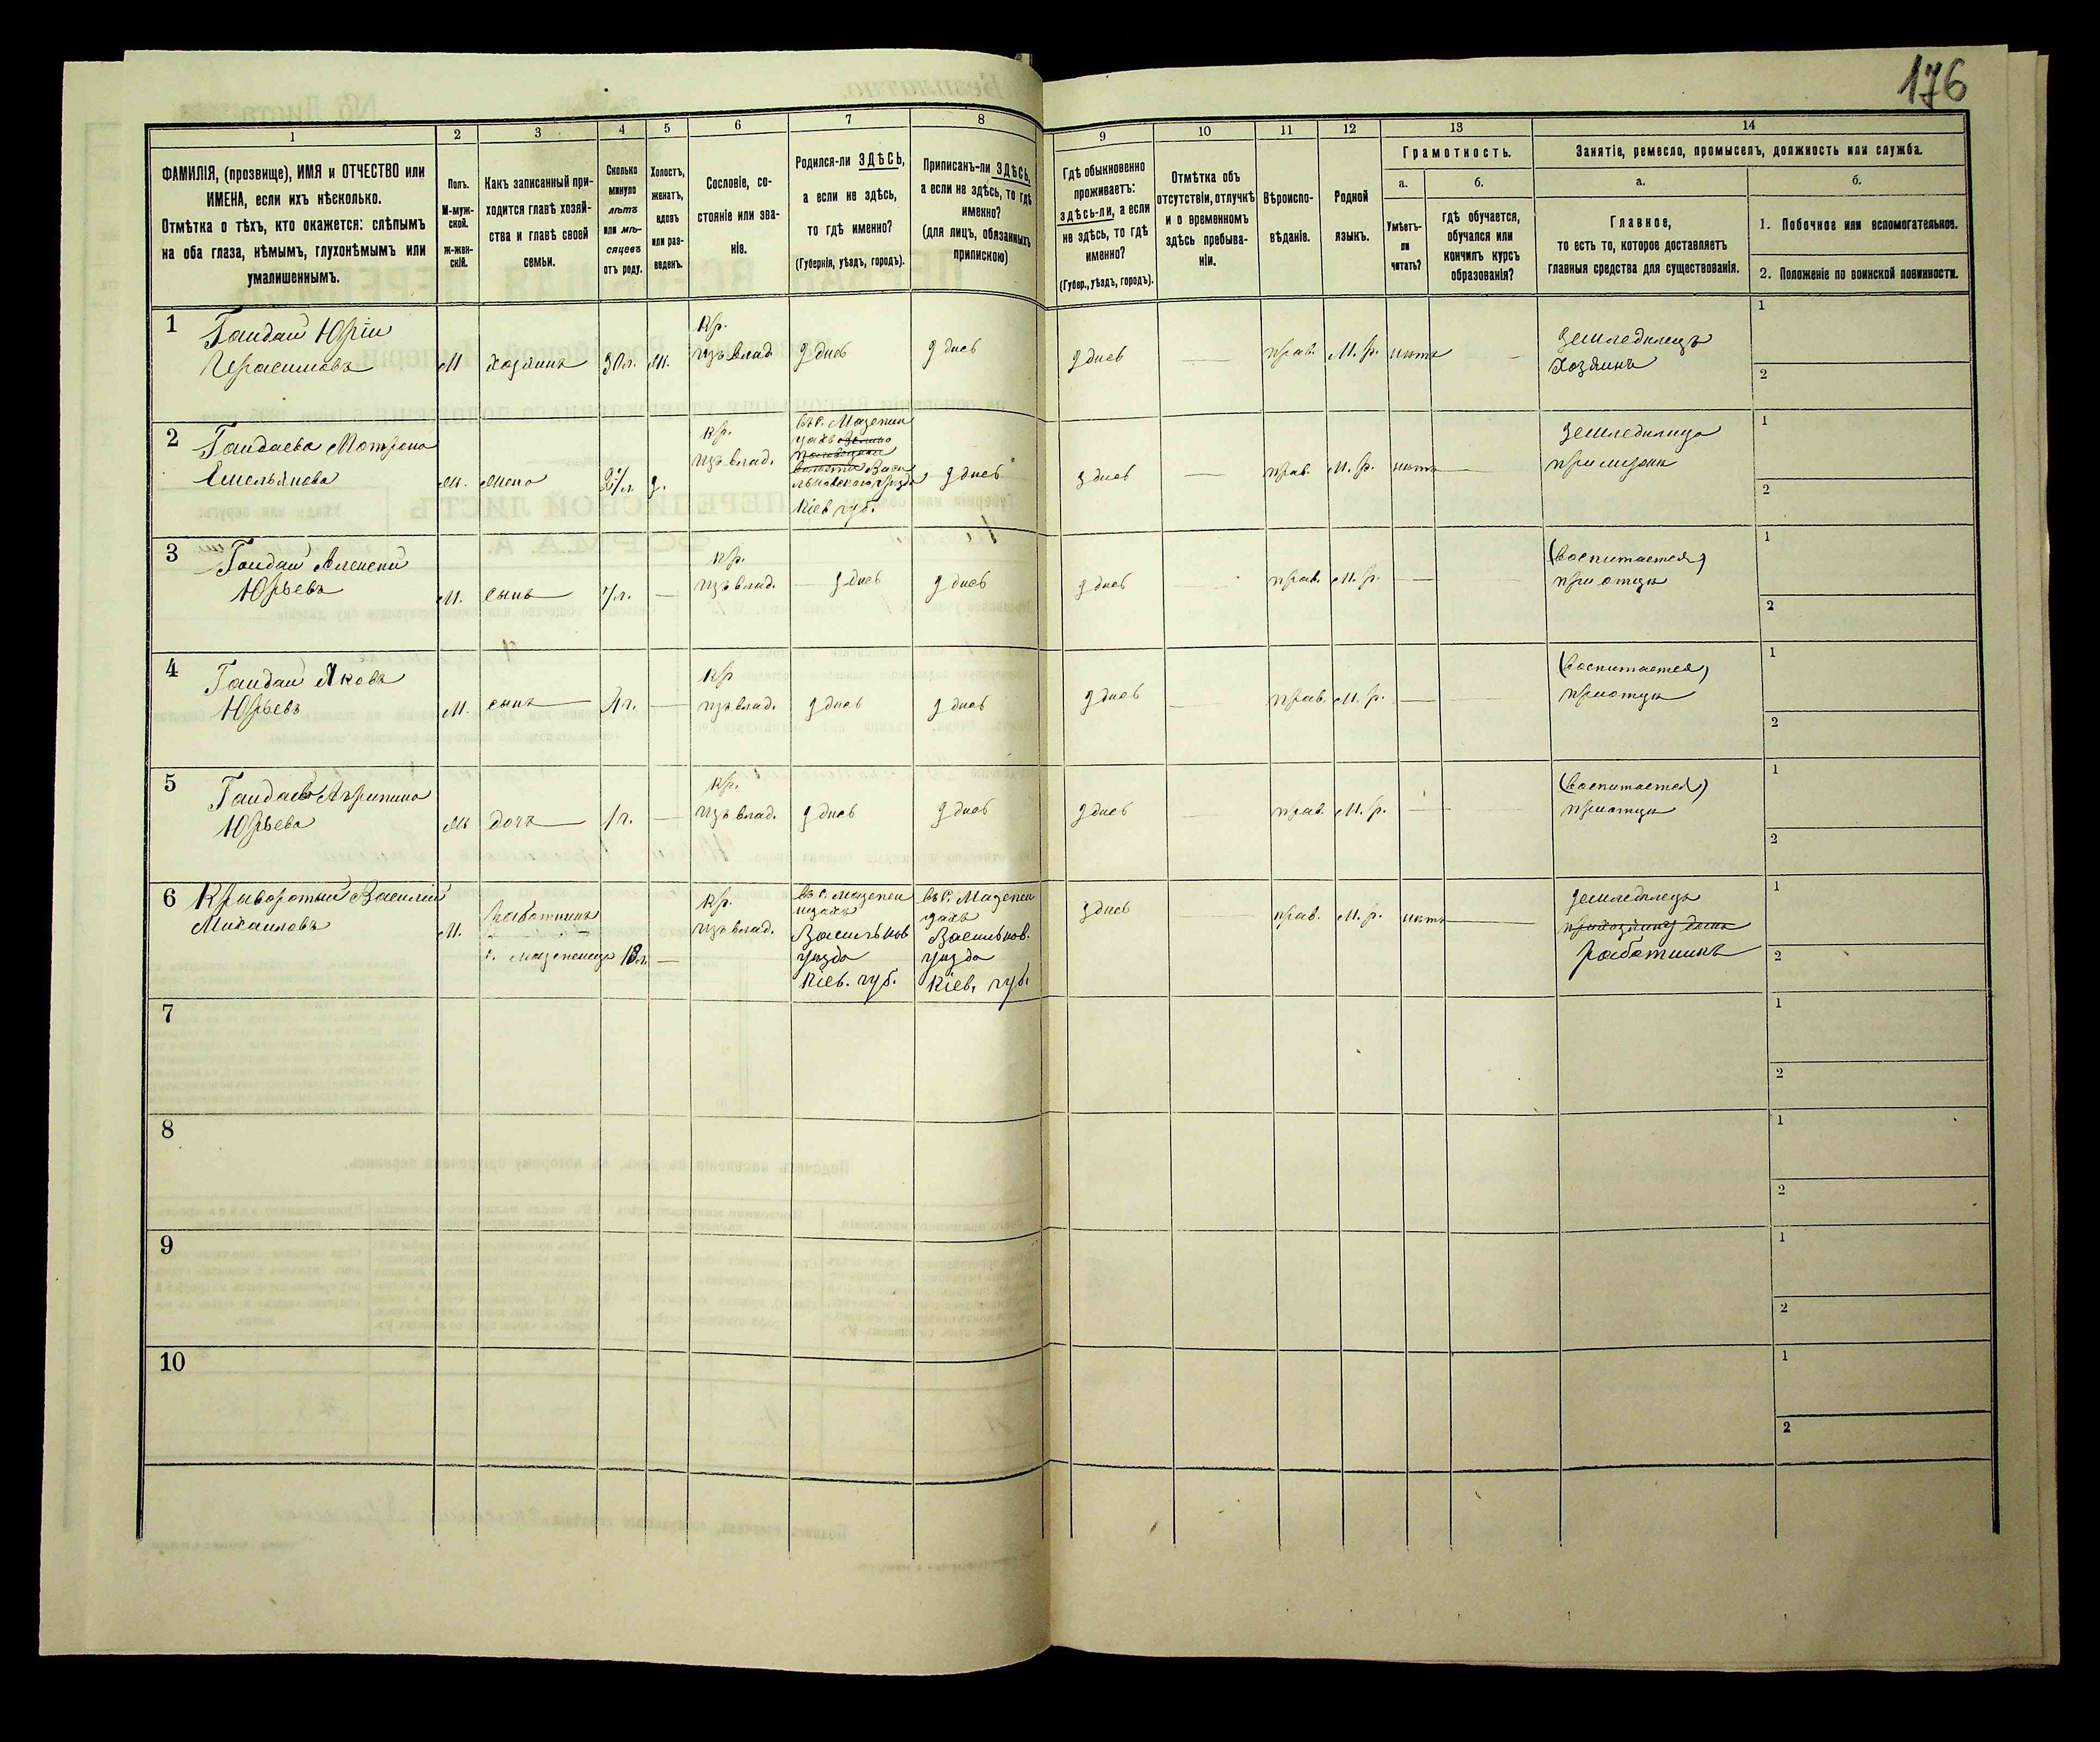 176
1
2
3
4
5
6
7
8
9
10
11
12
13
14
ФАМИЛІЯ, (прозвище), ИМЯ и ОТЧЕСТВО или
ИМЕНА, если ихъ нѣсколько.
Отмѣтка о тѣхъ, кто окажется: слѣпымъ
на оба глаза, нѣмымъ, глухонѣмымъ или
умалишеннымъ.
Полъ.
М-муж-
ской.
Ж-жен-
скій.
Какъ записанный при-
ходится главѣ хозяй-
ства и главѣ своей
семьи.
Сколько
минуло
лѣтъ
или мѣ-
сяцевъ
отъ роду.
Холостъ,
женатъ,
вдовъ
или раз-
веденъ.
Сословіе, со-
стояніе или зва-
ніе.
Родился-ли ЗДѢСЬ,
а если не здѣсь,
то гдѣ именно?
(Губернія, уѣздъ, городъ).
Приписанъ-ли ЗДѢСЬ,
а если не здѣсь, то гдѣ
именно?
(для лицъ, обязанныхъ
припискою)
Гдѣ обыкновенно
проживаетъ:
здѣсь-ли, а если
не здѣсь, то гдѣ
именно?
(Губер., уѣздъ, городъ).
Отмѣтка объ
отсутствіи, отлучкѣ
и о временномъ
здѣсь пребыва-
ніи.
Вѣроиспо-
вѣданіе.
Родной
языкъ.
Грамотность.
а.
Умѣетъ-
ли
читать?
б.
гдѣ обучается,
обучался или
кончилъ курсъ
образованія?
Занятіе, ремесло, промыселъ, должность или служба.
а.
Главное,
то есть то, которое доставляетъ
главныя средства для существованія.
б.
1. Побочное или вспомогательное.
2. Положеніе по воинской повинности.
1
Гандай Юрій
Герасимовъ
М
хозяинъ
30 л.
Кр.
изъ влад.
здѣсь
здѣсь
здѣсь
прав.
М. р.
нѣтъ
Земледѣлецъ
Хозяинъ
1
2
2
Гандаева Мотрона
Емельянова
жена
27 л.
Кр.
изъ влад.
въ с. Мазепин
цахъ
Васи
льковского уѣзда
Кіев губ.
здѣсь
здѣсь
прав.
М. р.
нѣтъ
Земледѣлица
при мужѣ
1
2
3
Гандай Алексей
Юрьевъ
М.
сынъ
7 л.
—
Кр.
изъ влад.
здѣсь
здѣсь
здѣсь
прав.
М. р.
—
(воспитается)
при отцѣ
1
2
4
Гандай Яковъ
Юрьевъ
М.
сынъ
4 г.
—
Кр
изъ влад.
здѣсь
здѣсь
здѣсь
прав.
М. р.
—
(воспитается)
при отцѣ
1
2
5
Гандаева Агрипина
Юрьева
дочь
1 г.
—
Кр.
изъ влад.
здѣсь
здѣсь
здѣсь
прав.
М. р.
—
(воспитается)
при отцѣ
1
2
6
Криворотый Василій
Михаиловъ
М.
Работникъ
18 л.
—
Кр.
изъ влад.
въ с. Мазепен
цахъ
Васильков
уѣзда
Кіев. губ.
въ с. Мазепен
цахъ
Васильков.
уѣзда
Кіев. губ.
здѣсь
прав.
М. р.
нѣтъ
Земледѣлецъ
работникъ
1
2
7
1
2
8
1
2
9
1
2
10
1
2